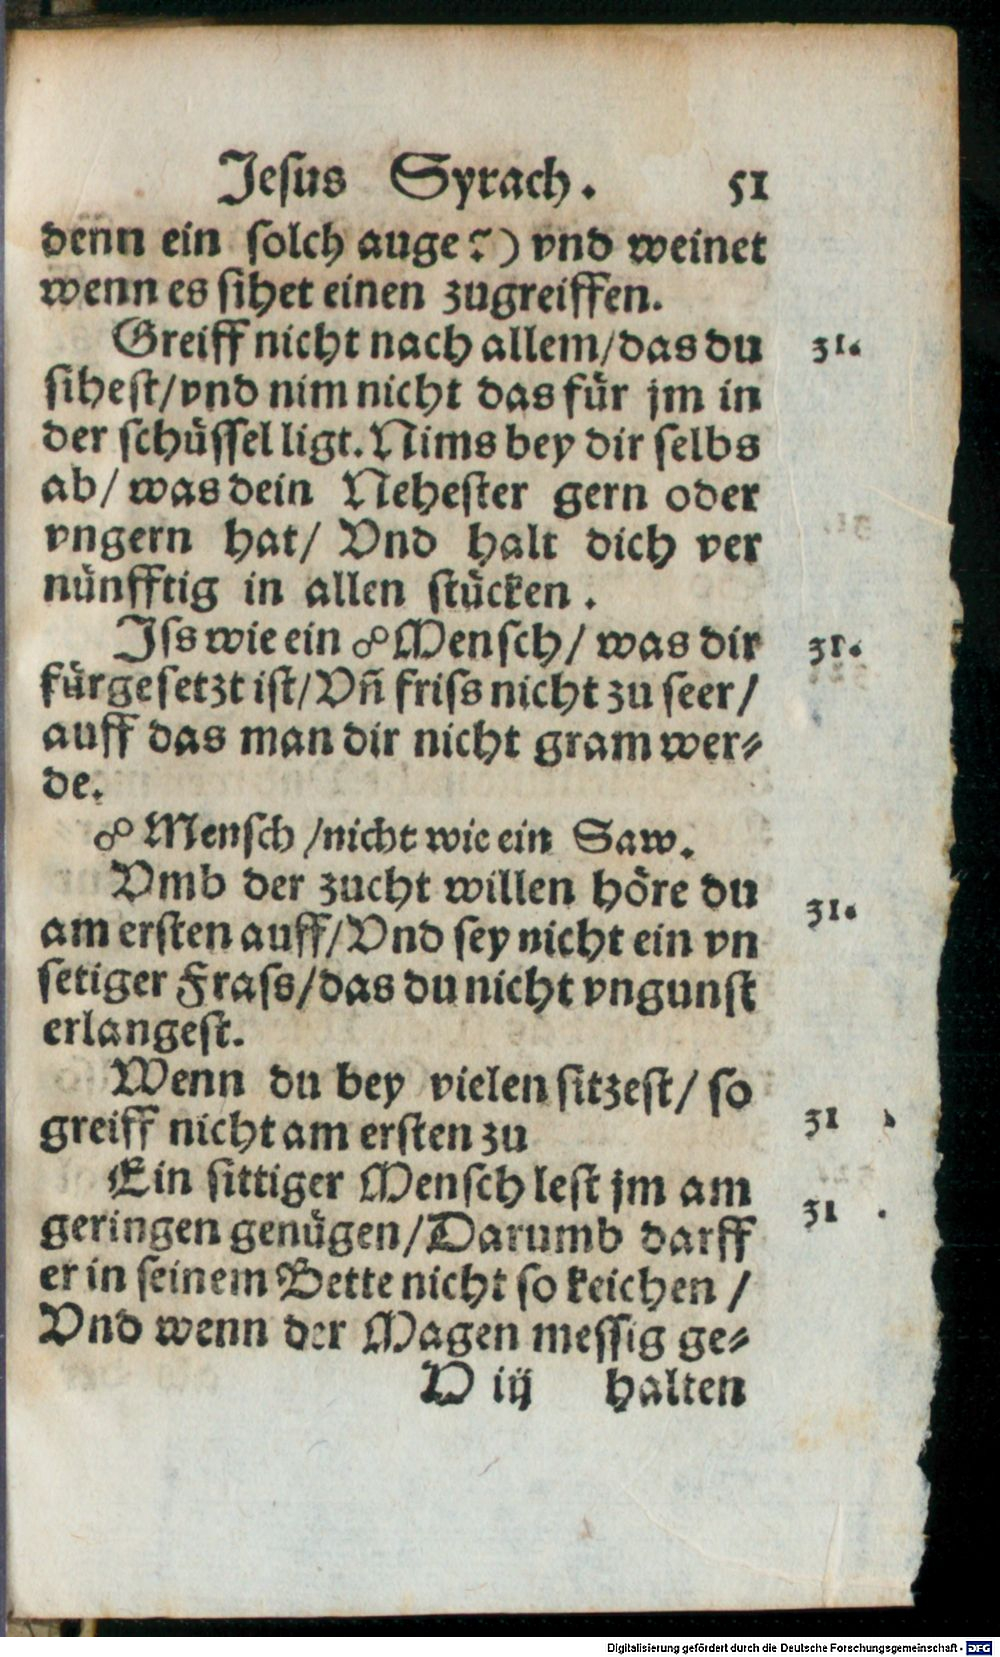 Jesus Syrach. 51
denn ein solch auge?) vnd weinet
wenn es sihet einen zugreiffen.
Greiff nicht nach allem/das du 31.
sihest/vnd nim nicht das für jm in
der schüssel ligt. Nims bey dir selbs
ab/ was dein Nehester gern oder
vngern hat/ Vnd halt dich ver
nünfftig in allen stücken.
Iss wie ein ☍ Mensch/ was dir 31.
fürgesetzt ist/Vñ friss nicht zu seer/
auff das man dir nicht gram wer⸗
de.
☍ Mensch /nicht wie ein Saw.
Vmb der zucht willen höre du 31.
am ersten auff/Vnd sey nicht ein vn
setiger Frass/das du nicht vngunst
erlangest.
Wenn du bey vielen sitzest/ so
greiff nicht am ersten zu 31
Ein sittiger Mensch lest jm am
geringen genügen/Darumb darff 31.
er in seinem Bette nicht so keichen /
Vnd wenn der Magen messig ge⸗
V iij halten
Digitalisierung gefördert durch die Deutsche Forschungsgemeinschaft - DFG